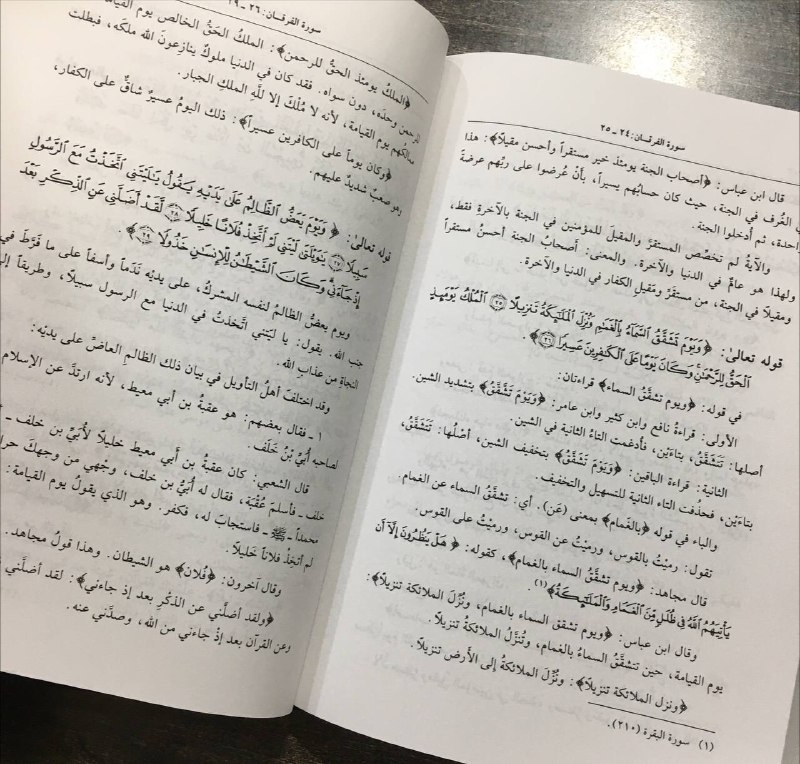 سورة الفرقان: ٢٤ ـ ٢٥
قال ابن عباس: ﴿أصحاب الجنة يومئذ خير مستقراً وأحسن مقيلاً﴾: هذا
الغُرف في الجنة، حيث كان حسابُهم يسيراً، بأنْ عُرضوا على ربّهم عرضةً
واحدة، ثم أُدخلوا الجنة.
والآيةُ لم تخصّص المستقرَّ والمقيلَ للمؤمنين في الجنة بالآخرةِ فقط،
ولهذا هو عامٌّ في الدنيا والآخرة. والمعنى: أصحابُ الجنة أحسنُ مستقراً
ومقيلاً في الجنة، من مستقَرِّ ومَقيلِ الكفار في الدنيا والآخرة.
قوله تعالىٰ: ﴿وَيَوْمَ تَشَقَّقُ السَّمَاءُ بِالْغَمَامِ وَنُزِّلَ الْمَلَٰئِكَةُ تَنزِيلًا ۝٢٥ الْمُلْكُ يَوْمَئِذٍ
الْحَقُّ لِلرَّحْمَٰنِ وَكَانَ يَوْمًا عَلَى الْكَٰفِرِينَ عَسِيرًا ۝٢٦﴾.
في قوله: ﴿ويوم تشقَّقُ السماء﴾ قراءتان:
الأولى: قراءةُ نافع وابن كثير وابن عامر: ﴿وَيَوْمَ تَشَّقَّقُ﴾ بتشديد الشين.
أصلها: تَتَشَقَّقُ، بتاءَيْن، فأُدغمت التاءُ الثانية في الشين.
الثانية: قراءة الباقين: ﴿وَيَوْمَ تَشَقَّقُ﴾ بتخفيف الشين، أصْلُها: تَتَشَقَّقُ،
بتاءَيْن، فحذُفت التاء الثانية للتسهيل والتخفيف.
والباء في قوله ﴿بالغَمام﴾ بمعنى (عَن). أي: تشقَّقُ السماء عن الغمام.
تقول: رميْتُ بالقوس، ورميْتُ عن القوس، ورميْتُ على القوس.
قال مجاهد: ﴿ويوم تشقق السماء بالغمام﴾، كقوله: ﴿هَلْ يَنظُرُونَ إِلَّا أَن
يَأْتِيَهُمُ اللَّهُ فِي ظُلَلٍ مِّنَ الْغَمَامِ وَالْمَلَٰئِكَةُ﴾(١).
وقال ابن عباس: ﴿ويوم تشقق السماء بالغمام، ونُزّلَ الملائكة تنزيلاً﴾:
يوم القيامة، حين تتشقَّقُ السماءُ بالغمام، وتُنَزَّلُ الملائكةُ تنزيلاً.
﴿ونزل الملائكة تنزيلاً﴾: ونُزّلُ الملائكةُ إلى الأرض تنزيلاً.
(١) سورة البقرة (٢١٠).
سورة الفرقان: ٢٦ ـ ٢٩
﴿الملكُ يومئذ الحقُّ للرحمن﴾: الملكُ الحَقُّ الخالص يوم القيامة
للرحمن وحدَه، دون سواه. فقد كان في الدنيا ملوكٌ ينازعونَ الله ملكَه، فبطلت
ممالكُهم يوم القيامة، لأنه لا مُلْكَ إلا للَّهِ الملكِ الجبار.
﴿وكان يوماً على الكافرين عسيراً﴾: ذلك اليومُ عسيرٌ شاقٌّ على الكفار،
وهو صعبٌ شديدٌ عليهم.
قوله تعالىٰ: ﴿وَيَوْمَ يَعَضُّ الظَّالِمُ عَلَىٰ يَدَيْهِ يَقُولُ يَٰلَيْتَنِي اتَّخَذْتُ مَعَ الرَّسُولِ
سَبِيلًا ۝٢٧ يَٰوَيْلَتَىٰ لَيْتَنِي لَمْ أَتَّخِذْ فُلَانًا خَلِيلًا ۝٢٨ لَّقَدْ أَضَلَّنِي عَنِ الذِّكْرِ بَعْدَ
إِذْ جَاءَنِي وَكَانَ الشَّيْطَٰنُ لِلْإِنسَٰنِ خَذُولًا ۝٢٩﴾.
ويوم يعضُّ الظالمُ لنفسه المشركُ، على يديْه نَدَماً وأسفاً على ما فَرَّطَ في
جنب الله. يقول: يا لَيْتني اتَّخذتُ في الدنيا مع الرسول سبيلاً، وطريقاً إلى
النجاةِ من عذابِ الله.
وقد اختلفَ أهلُ التأويل في بيان ذلك الظالمِ العاضِّ على يديْه:
١ ـ فقال بعضهم: هو عقبةُ بن أبي معيط، لأنه ارتدَّ عن الإسلام
لصاحبه أُبَيُّ بنُ خَلَف.
قال الشعبي: كان عقبةُ بن أبي معيط خليلاً لأُبَيِّ بن خلف ـ
خلف ـ فأسلمَ عُقْبَة، فقال له أُبيُّ بن خلف، وجْهي من وجهكَ حرا
محمداً ـ ﷺ ـ فاستجابَ له، فكفر. وهو الذي يقولُ يوم القيامة:
لم أتخِذْ فلاناً خَليلاً.
وقال آخرون: ﴿فُلان﴾ هو الشيطان. وهذا قولُ مجاهد.
﴿ولقد أضلَّني عن الذكْرِ بعد إذ جاءني﴾: لقد أضلَّني
وعن القرآن بعد إذْ جاءني من الله، وصدَّني عنه.